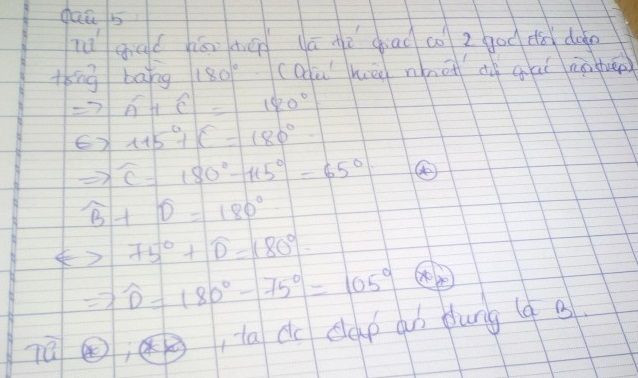 Câu 5
Tứ giác nội tiếp là tứ giác có 2 góc đối diện
tổng bằng 180°. (Dấu hiệu nhiết tứ giác nội tiếp)
=> Â + Ĉ = 180°
<=> 115° + Ĉ = 180°
=> Ĉ = 180° - 115° = 65° (*)
B̂ + D̂ = 180°
<=> 75° + D̂ = 180°
=> D̂ = 180° - 75° = 105° (**)
Từ (*) ; (**) , ta đc đáp án đúng là B.